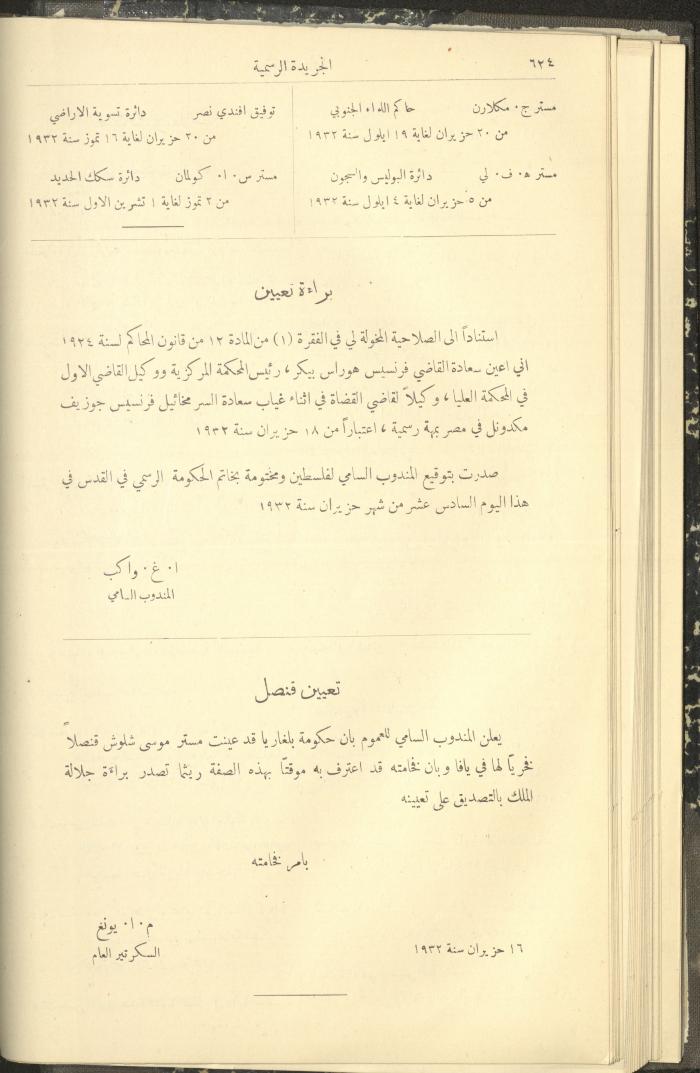 ٦٢٤
الجريدة الرسمية
مستر ج. مكلارن حاكم اللواء الجنوبي
من ٢٠ حزيران لغاية ١٩ ايلول سنة ١٩٣٢
مستر ه. ف. لي دائرة البوليس والسجون
من ٥ حزيران لغاية ٤ ايلول سنة ١٩٣٢
توفيق افندي نصر دائرة تسوية الاراضي
من ٢٠ حزيران لغاية ١٦ تموز سنة ١٩٣٢
مستر س. ا. كولمان دائرة سكك الحديد
من ٢ تموز لغاية ١ تشرين الاول سنة ١٩٣٢
براءة تعيين
استناداً الى الصلاحية المخولة لي في الفقرة (١) من المادة ١٢ من قانون المحاكم لسنة ١٩٢٤
اني اعين سعادة القاضي فرنسيس هوراس بيكر، رئيس المحكمة المركزية ووكيل القاضي الاول
في المحكمة العليا، وكيلاً لقاضي القضاة في اثناء غياب سعادة السر مخائيل فرنسيس جوزيف
مكدونل في مصر بمهمة رسمية، اعتباراً من ١٨ حزيران سنة ١٩٣٢
صدرت بتوقيع المندوب السامي لفلسطين ومختومة بخاتم الحكومة الرسمي في القدس في
هذا اليوم السادس عشر من شهر حزيران سنة ١٩٣٢
ا. غ. واكب
المندوب السامي
تعيين قنصل
يعلن المندوب السامي للعموم بان حكومة بلغاريا قد عينت مستر موسى شلوش قنصلاً
فخريّا لها في يافا وبان فخامته قد اعترف به موقتّا بهذه الصفة ريثما تصدر براءة جلالة
الملك بالتصديق على تعيينه
بامر فخامته
م. ا. يونغ
السكرتير العام
١٦ حزيران سنة ١٩٣٢